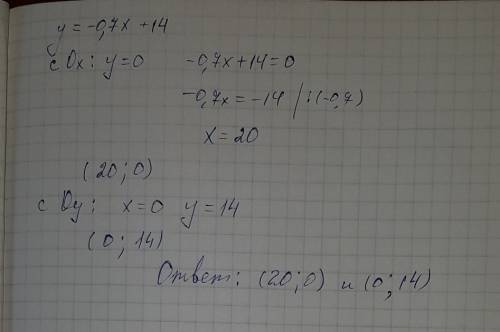 y = -0,7x + 14
с Ox: y=0 -0,7x+14=0
-0,7x = -14 /:(-0,7)
x = 20
(20; 0)
с Oy: x=0 y=14
(0; 14)
Ответ: (20; 0) и (0; 14)